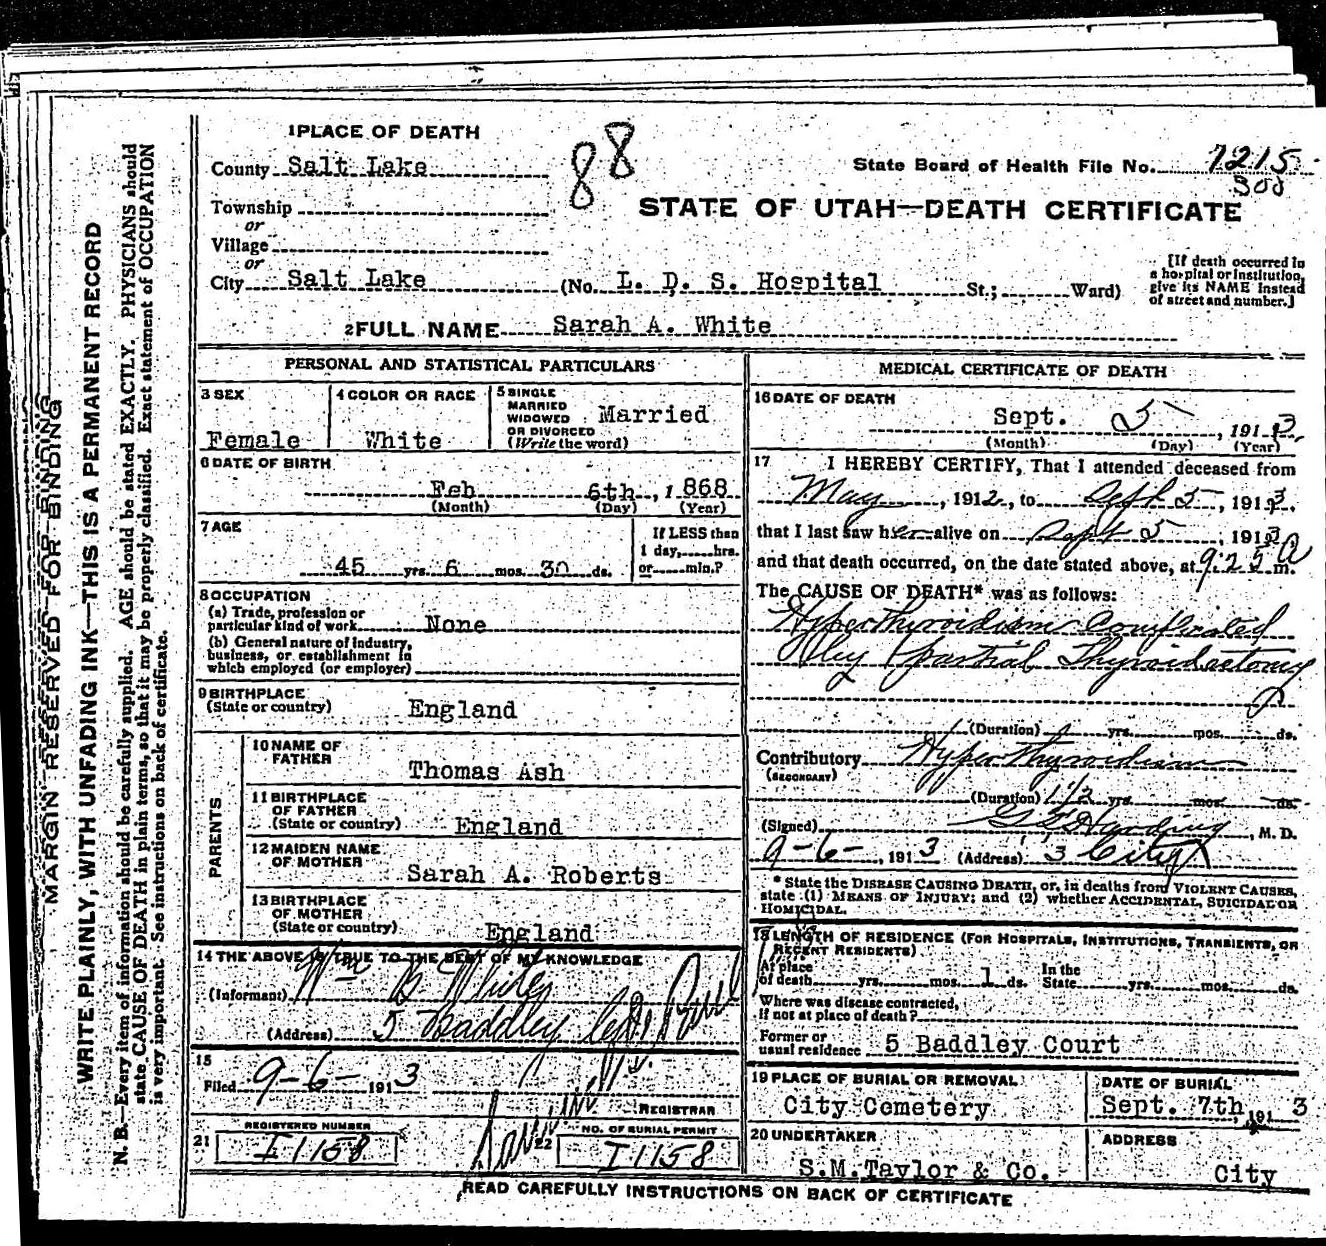 1 PLACE OF DEATH
88
County Salt Lake
State Board of Health File No. 1215
300
Township
or
STATE OF UTAH—DEATH CERTIFICATE
Village
or
City Salt Lake (No. L. D. S. Hospital St.; Ward)
[If death occurred in
a hospital or institution,
give its NAME instead
of street and number.]
2 FULL NAME Sarah A. White
PERSONAL AND STATISTICAL PARTICULARS
3 SEX
Female
4 COLOR OR RACE
White
5 SINGLE
MARRIED
WIDOWED
OR DIVORCED
(Write the word)
Married
6 DATE OF BIRTH
Feb 6th, 1868
(Month) (Day) (Year)
7 AGE
45 yrs. 6 mos. 30 ds.
If LESS than
1 day, hrs.
or min.?
8 OCCUPATION
(a) Trade, profession or
particular kind of work None
(b) General nature of industry,
business, or establishment in
which employed (or employer)
9 BIRTHPLACE
(State or country) England
PARENTS
10 NAME OF
FATHER Thomas Ash
11 BIRTHPLACE
OF FATHER
(State or country) England
12 MAIDEN NAME
OF MOTHER Sarah A. Roberts
13 BIRTHPLACE
OF MOTHER
(State or country) England
14 THE ABOVE IS TRUE TO THE BEST OF MY KNOWLEDGE
(Informant) Wm B.
(Address) 5 Baddley
15
Filed 9-6- 1913
REGISTRAR
21 REGISTERED NUMBER
I 1158
22 NO. OF BURIAL PERMIT
I 1158
MEDICAL CERTIFICATE OF DEATH
16 DATE OF DEATH
Sept. 5, 1913
(Month) (Day) (Year)
17 I HEREBY CERTIFY, That I attended deceased from
May, 1912, to Sept 5, 1913
that I last saw her alive on Sept 5, 1913
and that death occurred, on the date stated above, at 9:25 A m.
The CAUSE OF DEATH* was as follows:
Hyperthyroidism Complicated
by partial Thyroidectomy
(Duration) yrs. mos. ds.
Contributory Hyperthyroidism
(SECONDARY)
(Duration) 1 1/2 yrs. mos. ds.
(Signed) Harding, M. D.
9-6-, 1913 (Address) City
* State the DISEASE CAUSING DEATH, or, in deaths from VIOLENT CAUSES,
state (1) MEANS OF INJURY; and (2) whether ACCIDENTAL, SUICIDAL OR
HOMICIDAL.
18 LENGTH OF RESIDENCE (FOR HOSPITALS, INSTITUTIONS, TRANSIENTS, OR
RECENT RESIDENTS)
At place
of death yrs. mos. 1 ds. In the
State yrs. mos. ds.
Where was disease contracted,
if not at place of death?
Former or
usual residence 5 Baddley Court
19 PLACE OF BURIAL OR REMOVAL
City Cemetery
DATE OF BURIAL
Sept. 7th, 1913
20 UNDERTAKER
S.M.Taylor & Co.
ADDRESS
City
READ CAREFULLY INSTRUCTIONS ON BACK OF CERTIFICATE
MARGIN RESERVED FOR BINDING
WRITE PLAINLY, WITH UNFADING INK—THIS IS A PERMANENT RECORD
N. B.—Every item of information should be carefully supplied. AGE should be stated EXACTLY. PHYSICIANS should
state CAUSE OF DEATH in plain terms, so that it may be properly classified. Exact statement of OCCUPATION
is very important. See instructions on back of certificate.